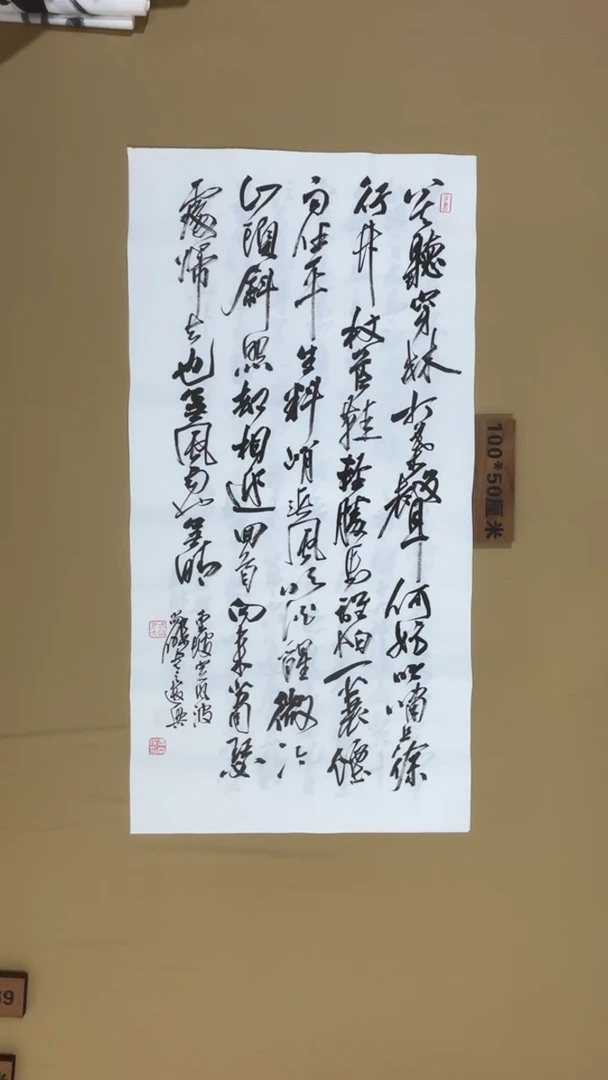 莫聽穿林打葉聲何妨吟嘯且徐
行竹杖芒鞋輕勝馬誰怕一蓑煙
雨任平生料峭春風吹酒醒微冷
山頭斜照却相迎回首向來蕭瑟
處歸去也無風雨也無晴
東坡定風波
100*50厘米
69